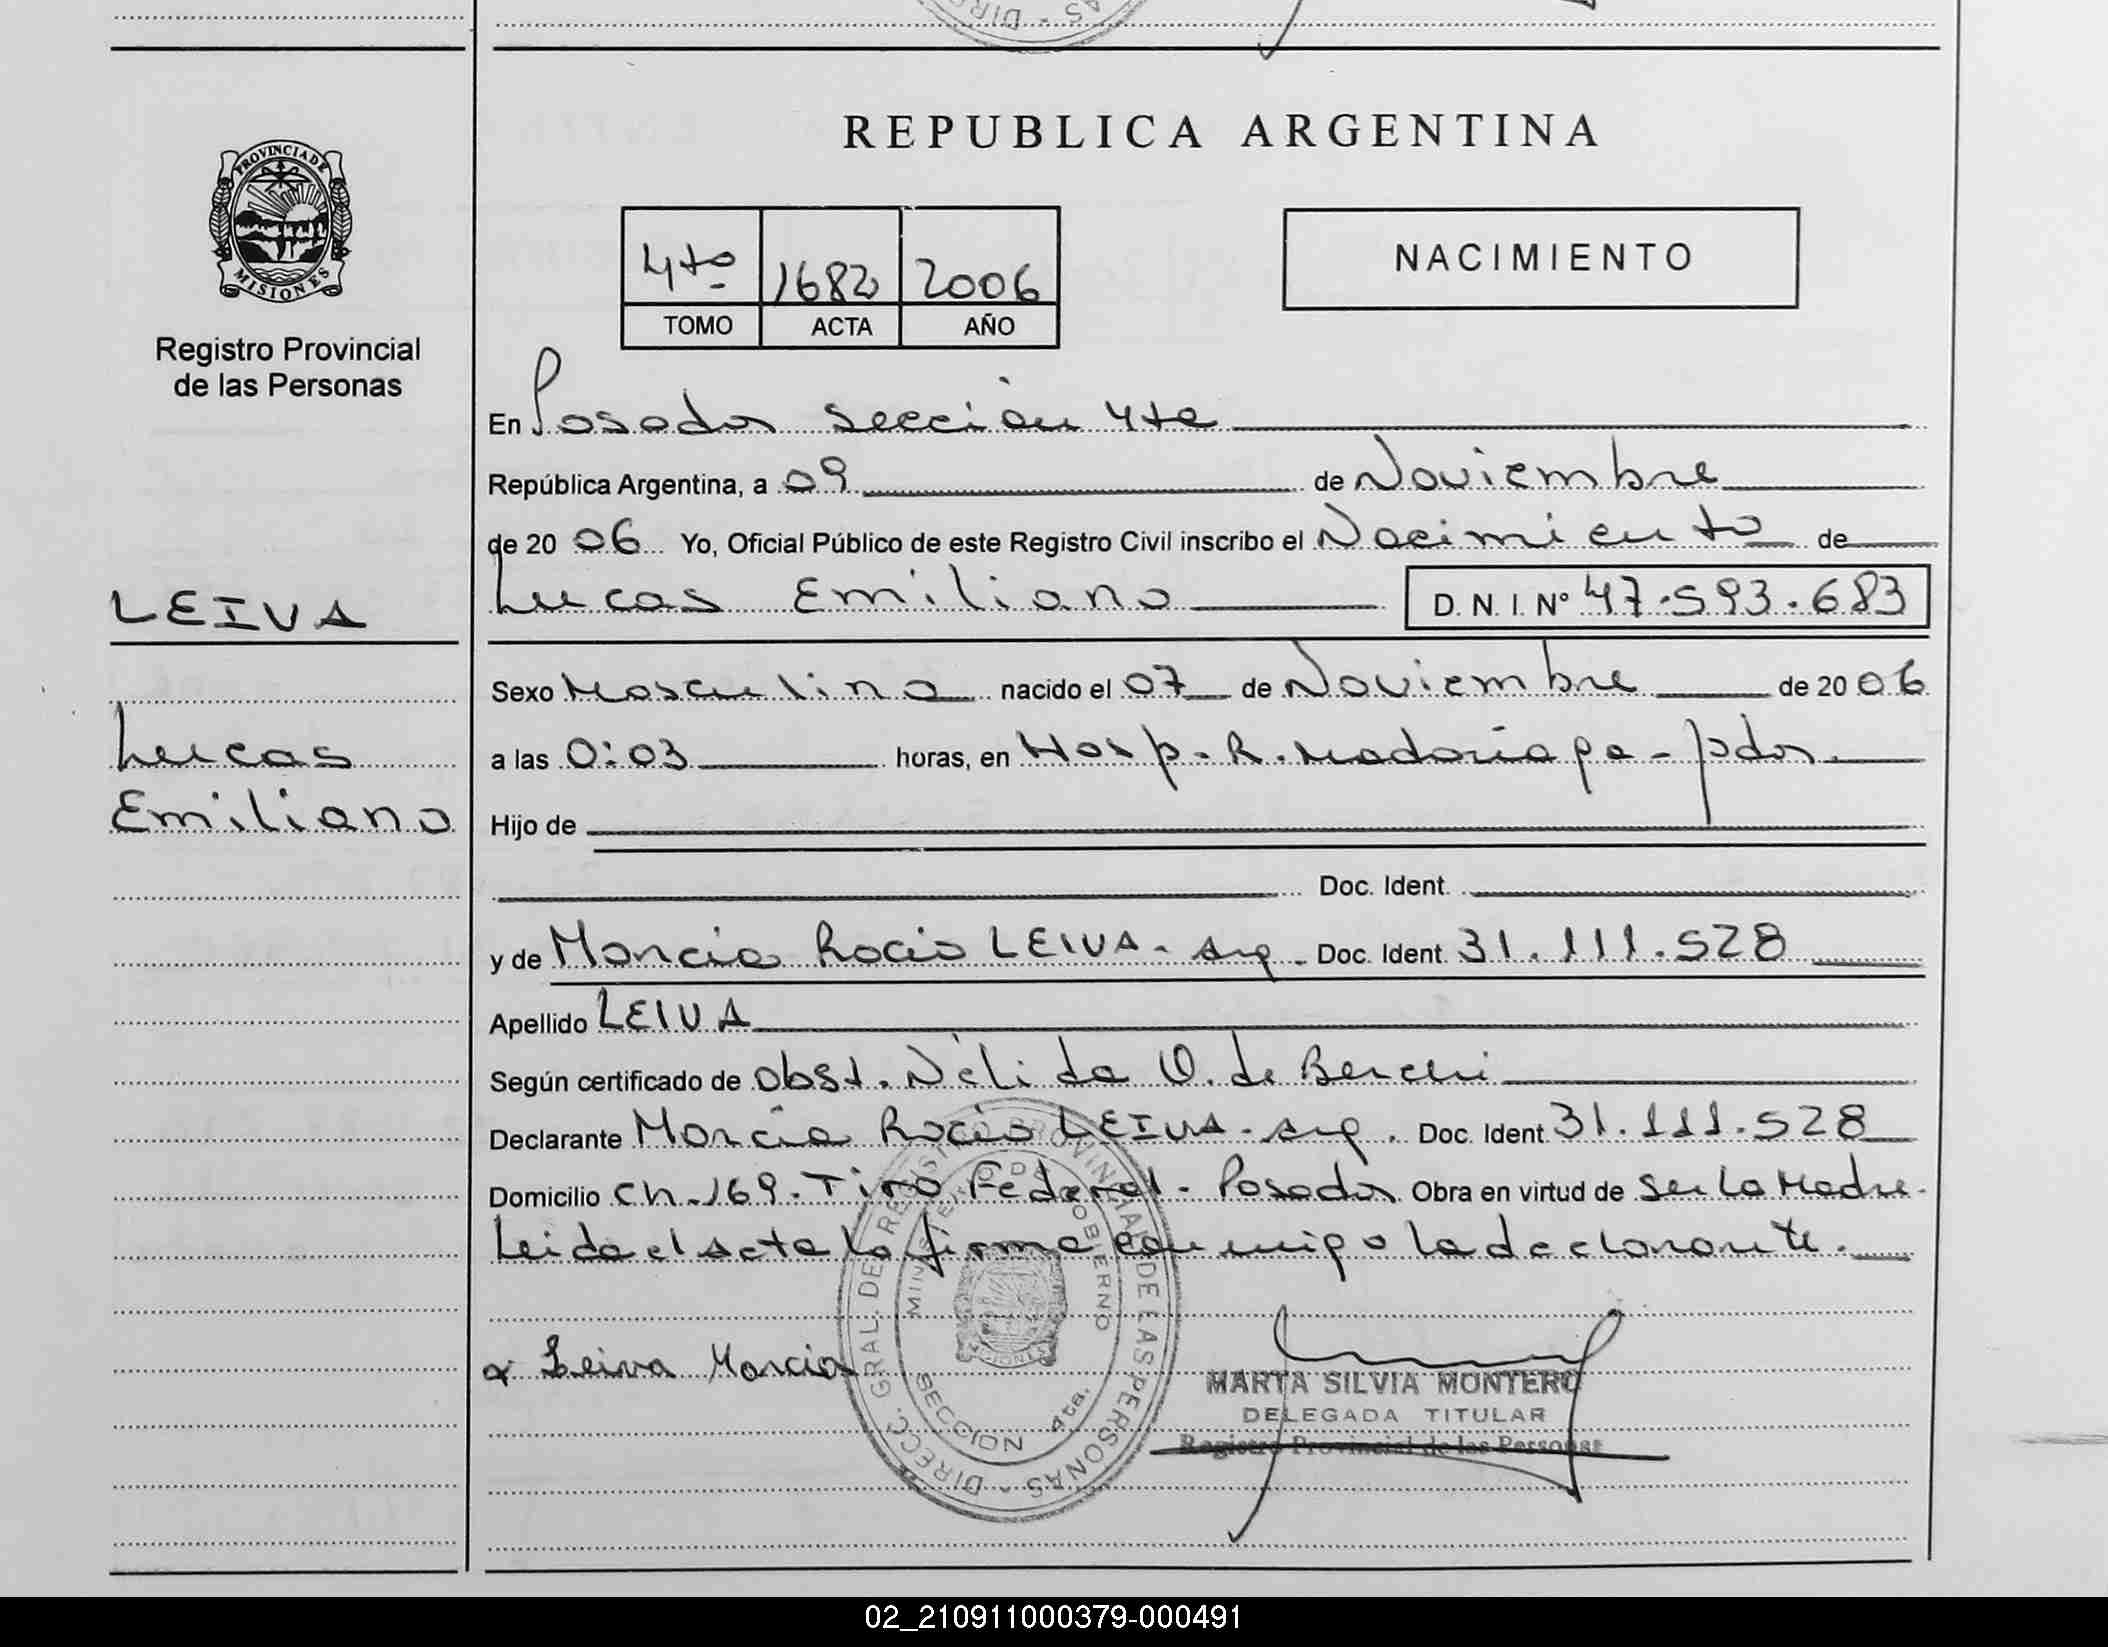 REPUBLICA ARGENTINA
PROVINCIA DE MISIONES
Registro Provincial
de las Personas
4to 1682 2006
TOMO ACTA AÑO
NACIMIENTO
En Posadas sección 4ta
República Argentina, a 09 de Noviembre
de 2006 Yo, Oficial Público de este Registro Civil inscribo el Nacimiento de
Lucas Emiliano D. N. I. Nº 47.593.683
LEIVA
Lucas
Emiliano
Sexo Masculino nacido el 07 de Noviembre de 2006
a las 0:03 horas, en Hosp. R. Madariaga - Pdas.
Hijo de
Doc. Ident.
y de Marcia Rocio LEIVA - arg. Doc. Ident. 31.111.528
Apellido LEIVA
Según certificado de obst. Nélida O. de
Declarante Marcia Rocio LEIVA - arg. Doc. Ident 31.111.528
Domicilio Ch. 169 - Tiro Federal - Posadas Obra en virtud de ser la Madre.
Leida el acta la firma conmigo la declarante.
Leiva Marcia
DIRECC. GRAL. DE REGISTRO PROVINCIAL DE LAS PERSONAS
MINISTERIO DE GOBIERNO
SECCION 4ta.
MARTA SILVIA MONTERO
DELEGADA TITULAR
Registro Provincial de las Personas
02_210911000379-000491